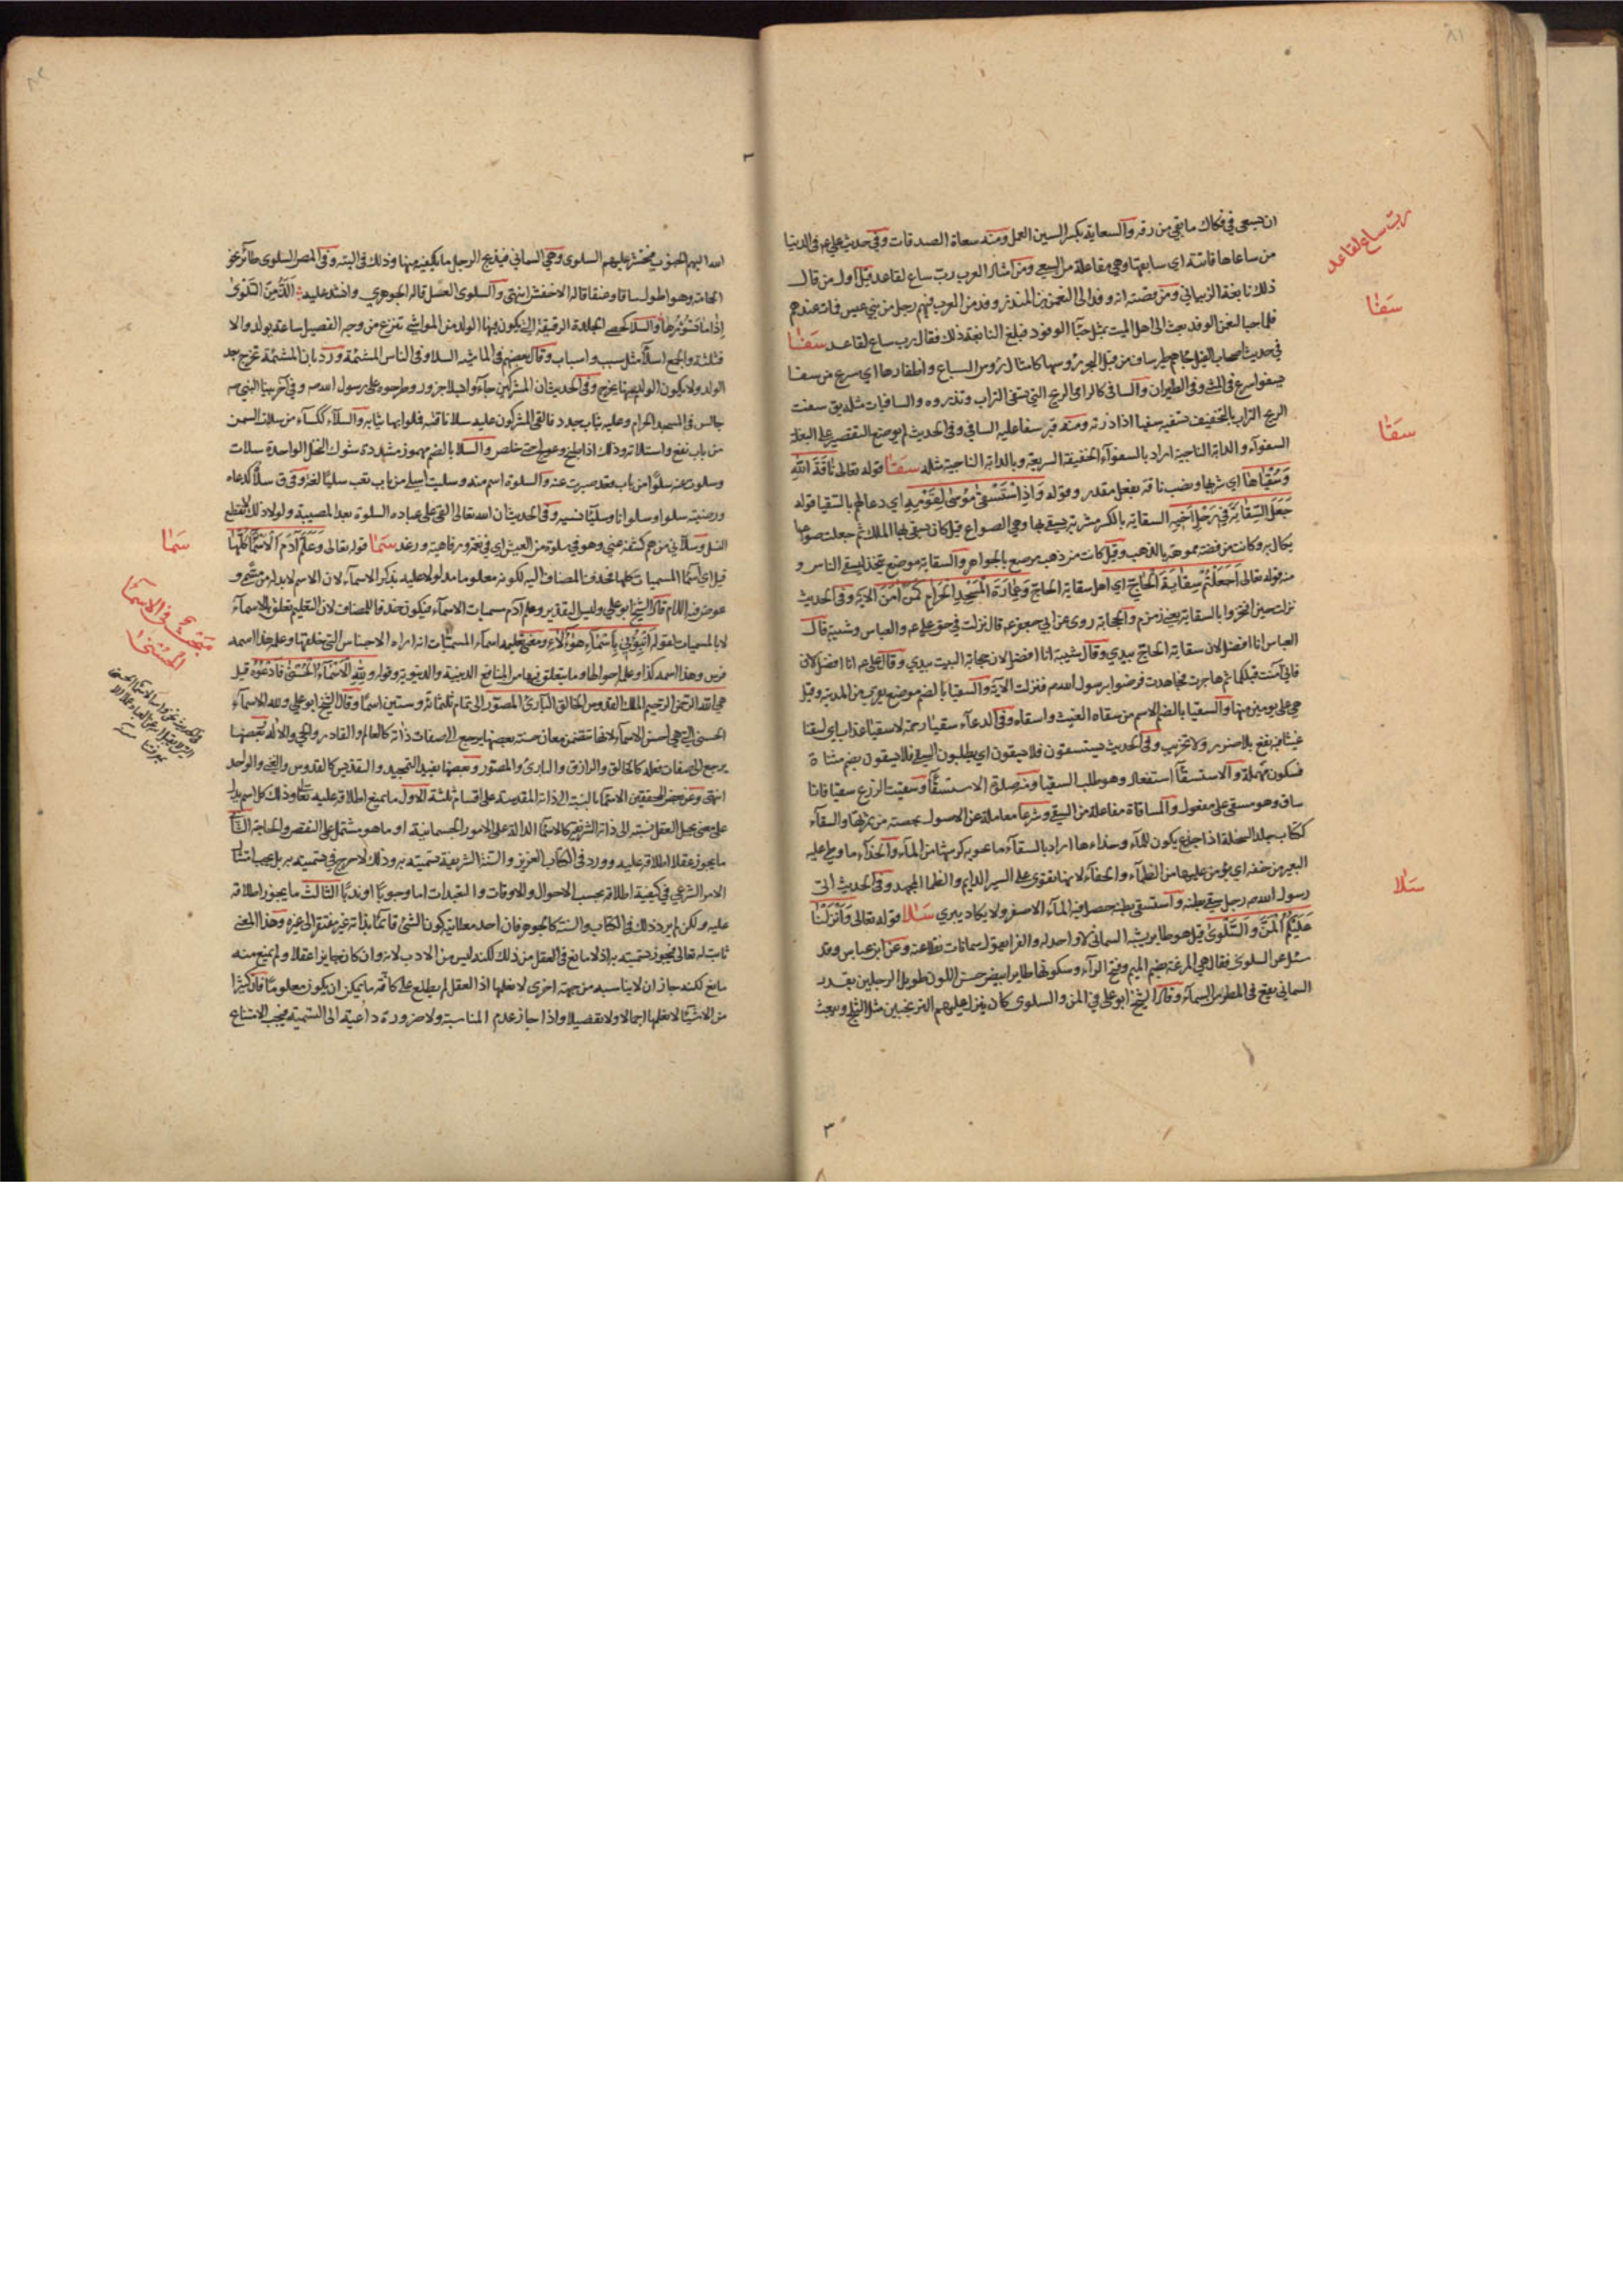 ان يسعى في فكاك ما بقي من رقه والسعاية بكسر السين العمل ومنه سعاة الصدقات وفي حديث علي ع في الدنيا
من ساعاها فاتته اي سابقها وهي مفاعلة من السعي ومن امثال العرب رب ساع لقاعد قيل اول من قال
ذلك نابغة الذبياني ومن قصته انه وفد الى النعمن بن المنذر وفد من العرب فيهم رجل من بني عبس فمات عندهم
فلما حبا النعمن الوفد بعث الى اهل الميت بمثل حبآء الوفود فبلغ النابغة ذلك فقال رب ساع لقاعد سفا
في حديث اصحاب الفيل
يسفو اسرع في المشي وفي الطيران والسافي كالرامي الريح التي تسفي التراب وتذروه والسافيات مثله يق سفت
الريح التراب بالتخفيف تسفيه سفيا اذا ذرته ومنه قبر سفا عليه السافي وفي الحديث
السفوآء والدابة الناجية اراد بالسفوآء الخفيفة السريعة وبالدابة الناجية مثله سقا قوله تعالى ناقة الله
وسقياها اي شربها ونصب ناقة بفعل مقدر وقوله واذ استسقى موسى لقومه اي دعا لهم بالسقيا قوله
جعل السقاية في رحل اخيه السقاية بالكسر مشربة يسقى بها وهي الصواع قيل كان يسقى بها الملك ثم جعلت صوعا
يكال به وكانت من فضة مموهة بالذهب وقيل كانت من ذهب مرصع بالجواهر والسقاية موضع يتخذ ليسقى الناس و
منه قوله تعالى اجعلتم سقاية الحاج اي اهل سقاية الحاج وعمارة المسجد الحرام كمن آمن الآية وفي الحديث
نزلت حين افتخروا بالسقاية يعني زمزم والحجابة روى عن ابي جعفر ع قال نزلت في حق علي ع والعباس وشيبة قال
العباس انا افضل لان سقاية الحاج بيدي وقال شيبة انا افضل لان حجابة البيت بيدي وقال علي ع انا افضل لاني
آمنت قبلكما ثم هاجرت وجاهدت فرضوا برسول الله ص فنزلت الآية والسقيا بالضم موضع يقرب من المدينة وقيل
هي على يومين منها والسقيا بالضم الاسم من سقاه الغيث واسقاه وفي الدعآء سقيا رحمة لا سقيا عذاب اي اسقنا
غيثا فيه نفع بلا ضرر ولا تخريب وفي الحديث يستسقون فلا يسقون اي يطلبون السقي فلا يسقون بضم مثناة
فسكون مهملة والاستسقآ استفعال وهو طلب السقيا ومنه صلوة الاستسقآ وسقيت الزرع سقيا فانا
ساق وهو مسقي على مفعول والمساقاة مفاعلة من السقي وشرعا معاملة على الاصول بحصة من ثمرتها والسقآء
ككتاب جلد السخلة اذا اجذع يكون للمآء
رسول الله ص رجل يسقى بطنه واستسقى بطنه حصل فيه المآء الاصفر ولا يكاد يبرئ سلا قوله تعالى وانزلنا
عليكم المن والسلوى قيل هو طاير يشبه السماني لا واحد له والفرا يقول سمانات نقلا عنه وعن ابن عباس وقد
سئل عن السلوى فقال هي المرعة بضم الميم وفتح الرآء وسكونها طاير ابيض حسن اللون طويل الرجلين بقدر
السماني يقع في المطر من السمآء وقال الشيخ ابو علي في المن والسلوى كان ينزل عليهم الترنجبين مثل الثلج ويبعث
رب ساع لقاعد
سفا
سقا
سلا
الله اليهم الجنوب فتحشر عليهم السلوى وهي السماني فيذبح الرجل ما يكفيه منها وذلك في التيه وفي المصر السلوى طآئر نحو
الحمامة وهو اطول ساقا وعنقا قاله الاخفش انتهى والسلوى العسل قاله الجوهري وانشد عليه الذ من السلوى
اذا ما نشورها والسلا كحصى الجلدة الرقيقة التي يكون فيها الولد من المواشي تنزع من وجه الفصيل ساعة يولد والا
قتلته والجمع اسلآ مثل سبب واسباب وقال بعضهم في الماشية السلا وفي الناس المشيمة ورد بان المشيمة تخرج بعد
الولد ولا يكون الولد فيها يخرج وفي الحديث ان المشركين جاءوا بسلا جزور وطرحوه على رسول الله ص وفي آخر بينا النبي ص
جالس في المسجد الحرام وعليه ثياب جدد فالقى المشركون عليه سلا ناقة فملوا بها ثيابه والسلآء ككساء من سلات السمن
والسلا بالضم مهموز مشددة شوك النخل الواحدة سلات
وسلوت عنه سلوا من باب قعد صبرت عنه والسلوة اسم منه وسليت اسلى من باب تعب سليا لغة وفي ق سلاه كدعاه
ورضيه سلوا وسلوانا وسليا نسيه وفي الحديث ان الله تعالى القى على عباده السلوة بعد المصيبة ولولا ذلك لانقطع
النسل وسلآني من هم كشفه عني وهو في سلوة من العيش اي في نعمة ورفاهية ورغد سما قوله تعالى وعلم آدم الاسمآء كلها
قيل اي اسمآ المسميات كلها فحذف المضاف اليه لكونه معلوما مدلولا عليه بذكر الاسمآء لان الاسم لا بد له من مسمى و
عوض منه اللام قال الشيخ ابو علي وليس التقدير وعلم آدم مسميات الاسمآء فيكون حذفا للمضاف لان التعليم تعلق بالاسمآء
لا بالمسميات لقوله انبئوني باسمآء هؤلاء ومعنى تعليمه اسمآء المسميات انه اراه الاجناس التي خلقها وعلمه هذا اسمه
فرس وهذا اسمه كذا وعلمه احوالها وما يتعلق بها من المنافع الدينية والدنيوية وقوله ولله الاسمآء الحسنى فادعوه قيل
هي الله الرحمن الرحيم الملك القدوس الخالق البارئ المصور الى تمام ثلثمائة وستين اسما وقال الشيخ ابو علي ولله الاسمآء
الحسنى التي هي احسن الاسمآء لانها تتضمن معان حسنة بعضها يرجع الى صفات ذاته كالعالم والقادر والحي والاله وبعضها
يرجع الى صفات فعله كالخالق والرازق والبارئ والمصور وبعضها يفيد التمجيد والتقديس كالقدوس والغني والواحد
انتهى وعن بعض المحققين الاسمآء بالنسبة الى ذاته المقدسة على اقسام ثلثة الاول ما يمنع اطلاقه عليه تعالى وذلك كل اسم يدل
على معنى يحيل العقل نسبته الى ذاته الشريفة كالاسمآ الدالة على الامور الجسمانية او ما هو مشتمل على النقص والحاجة الثاني
ما يجوز عقلا اطلاقه عليه وورد في الكتاب العزيز والسنة الشريفة تسميته به وذلك لا حرج في تسميته به بل يجب امتثال
الامر الشرعي في كيفية اطلاقه بحسب الاحوال والاوقات والتعبدات اما وجوبا او ندبا الثالث ما يجوز اطلاقه
عليه ولكن لم يرد ذلك في الكتاب والسنة كالجوهر فان احد معانيه كون الشئ قائما بذاته غير مفتقر الى غيره وهذا المعنى
ثابت له تعالى فيجوز تسميته به اذ لا مانع في العقل من ذلك لكنه ليس من الادب لانه وان كان جايزا عقلا ولم يمنع منه
مانع لكنه جاز ان لا يناسبه من جهة اخرى لا نعلمها اذ العقل لم يطلع على كافة ما يمكن ان يكون معلوما فان كثيرا
من الاشيآء لا نعلمها اجمالا ولا تفصيلا واذا جاز عدم المناسبة ولا ضرورة داعية الى التسمية فيجب الامتناع
سما
مبحث في الاسمآء
الحسنى